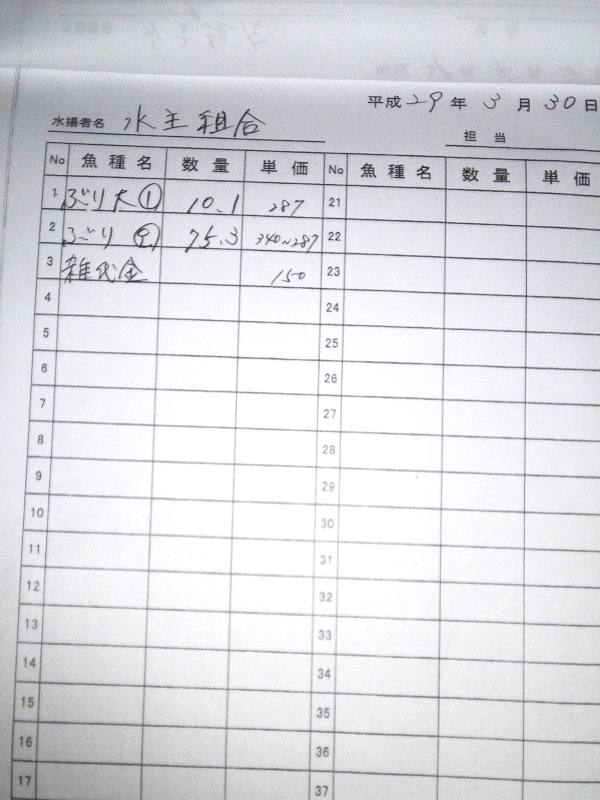 平成29年 3月 30日
水揚者名 水主組合
担当
No 魚種名 数量 単価 No 魚種名 数量 単価
1 ぶり大① 10.1 287 21
2 ぶり 75.3 340~287 22
3 雑代金 150 23
4 24
5 25
6 26
7 27
8 28
9 29
10 30
11 31
12 32
13 33
14 34
15 35
16 36
17 37